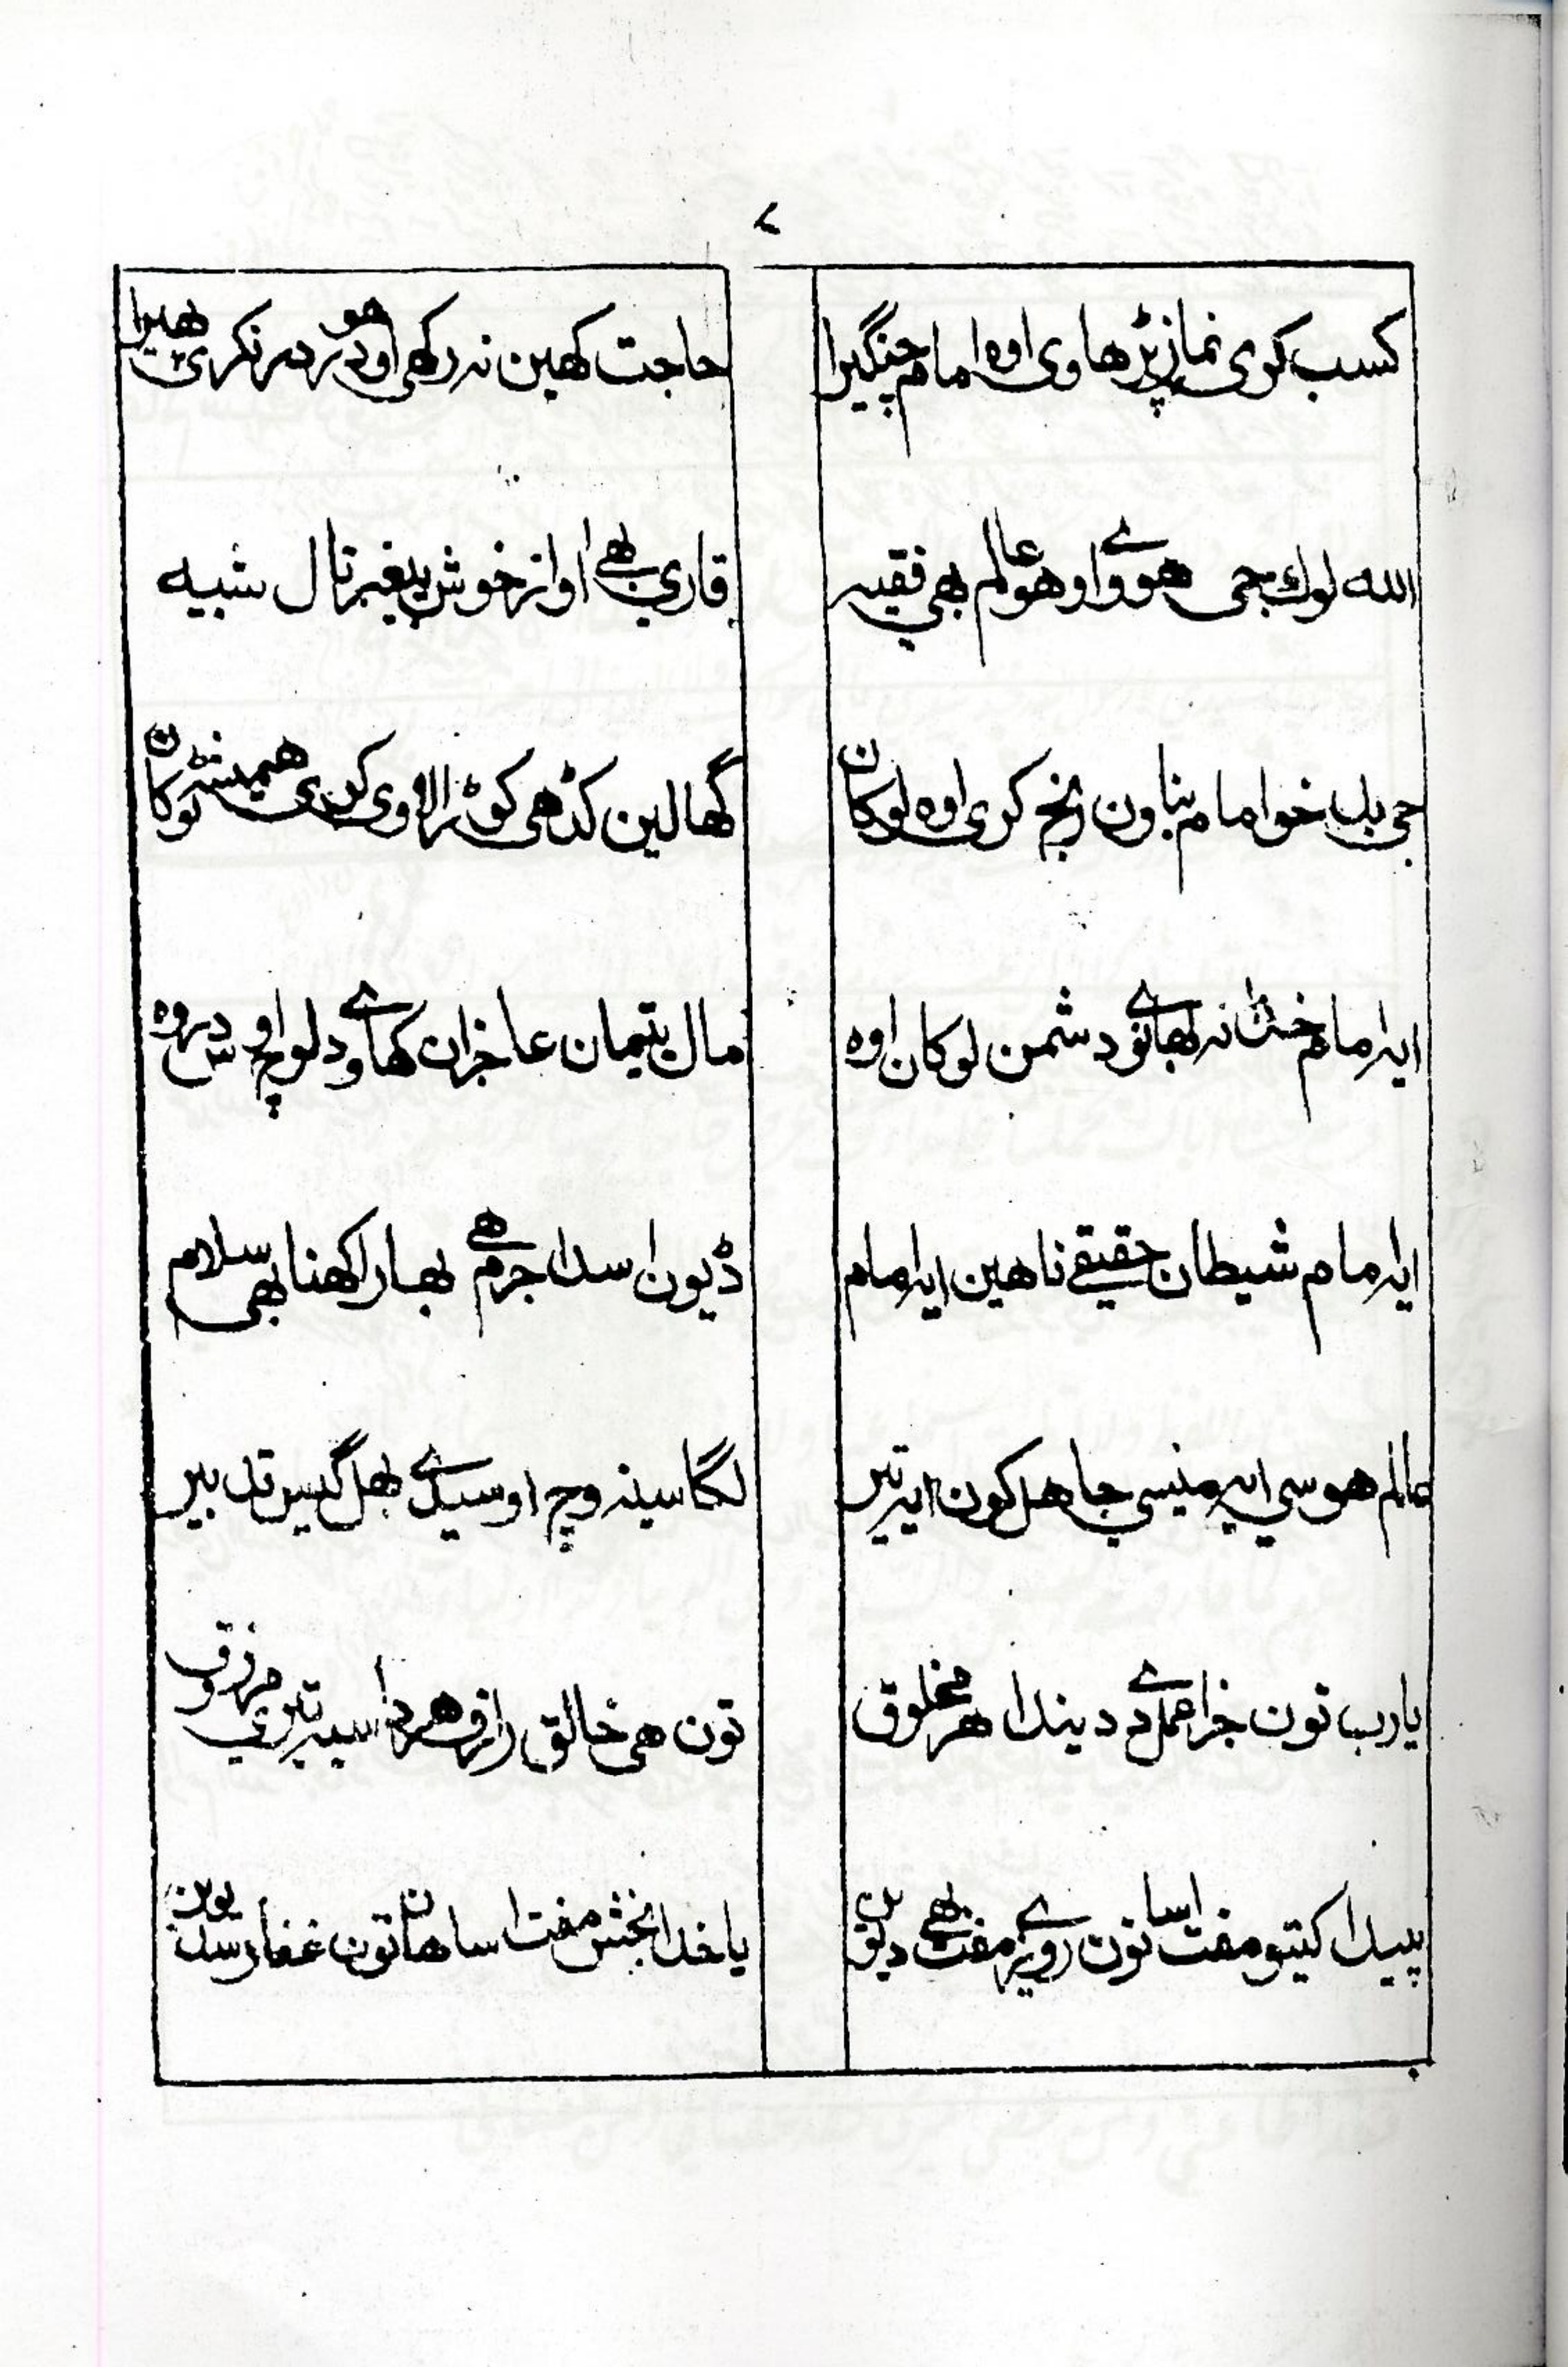 ۷
کسب کری نماز پڑھاوی اوہ امام چنگیرا
حاجت کھین نہ رکھی او ھو در در نکری پھیرا
اللہ لوک جی ھووے او ھو عالم بھی فقیہ
قاری بھی اواز خوش پیغمبر نال شبیہ
جی بد خو امام بناون رنج کری اوہ لوکان
گھالین کڈھی کوڑ الاوی کری ھمیشہ ٹوکان
ایہ امام خدا نہ بھاوے دشمن لوکان اوہ
مال یتیمان عاجزان کھاوے دلو اوچ
ایہ امام شیطان حقیقے ناھین ایہ امام
ڈیون اسدا جرم ھے بھار اکھنا بھی سلام
عالم ھوسی ایہ منیسی جاھل کون ایہ تیر
لگا سینہ وچ اوسیدے بھل گیس تدبیر
یارب تون جزا عمل دے دیندا ھر مخلوق
تون ھی خالق رازق ھر دا سبہ تیری مرزوق
پیدا کیتو مفت اسانون روزے مفت بھے دیون
یا خدا بخش مفت اسانھان تون غفار سدیون